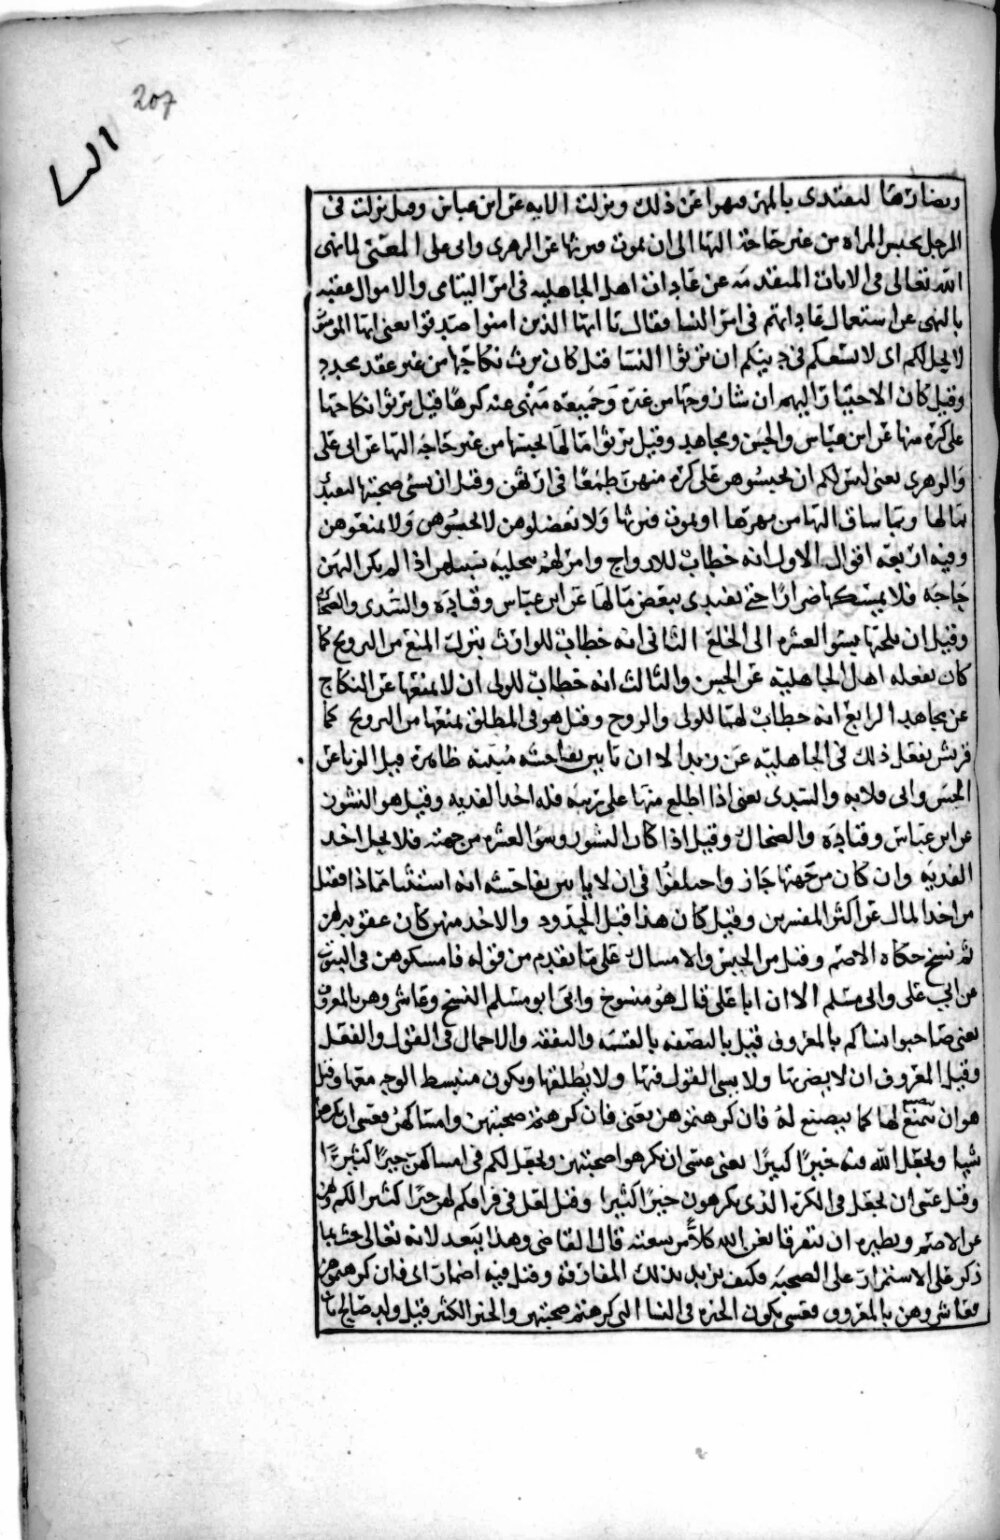 207
النسا
ويضارها لتفتدي بالمهر فنهوا عن ذلك ونزلت الايه عن ابن عباس وقيل نزلت في
الرجل يحبس المراه من غير حاجة اليها الى ان تموت فيرثها عن الزهري وابي علي المعنى لما نهى
الله تعالى في الايات المتقدمه عن عادات اهل الجاهليه في امر اليتامى والاموال عقبه
بالنهي عن استعمال عاداتهم في امر النسا فقال يا ايها الذين امنوا صدقوا يعني ايها المومنون
لا يحل لكم اي لا يسعكم في دينكم ان ترثوا النسا قيل كان يرث نكاحها من غير عقد مجدد
وقيل كان الاختيار اليهم ان شا زوجها من غيره وجميعه منهي عنه كرها قيل ترثوا نكاحها
على كره منها عن ابن عباس والحسن ومجاهد وقيل ترثوا مالها لحبسها من غير حاجه اليها عن ابي علي
والزهري يعني ليس لكم ان تحبسوهن على كره منهن طمعا في ارثهن وقيل ان يسئ صحبتها لتفتدي
بمالها وبما ساق اليها من مهرها او تموت فيرثها ولا تعضلوهن لا تحبسوهن ولا تمنعوهن
وفيه اربعه اقوال الاول انه خطاب للازواج وامر لهم بتخليه سبيلهن اذا لم يكن اليهن
حاجه فلا يمسكها ضرارا حتى تفتدي ببعض مالها عن ابن عباس وقتاده والسدي والضحاك
وقيل ان يلجيها بسو العشره الى الخلع الثاني انه خطاب للوارث بترك المنع من التزويج كما
كان يفعله اهل الجاهلية عن الحسن والثالث انه خطاب للولي ان لا يمنعها عن النكاح
عن مجاهد الرابع انه خطاب لهما للولي والزوج وقيل هو في المطلق يمنعها من التزويج كما
قريش تفعل ذلك في الجاهلية عن زيد الا ان ياتين بفاحشة مبينة ظاهرة قيل الزنا عن
الحسن وابي قلابه والسدي يعني اذا اطلع منها على ريبه فله اخذ الفديه وقيل هو النشوز
عن ابن عباس وقتادة والضحاك وقيل اذا كان النشوز وسو العشره من جهته فلا يحل اخذ
الفديه وان كان من جهتها جاز واختلفوا في ان لا ياتين بفاحشه انه استثنا مماذا فقيل
من اخذ المال عن اكثر المفسرين وقيل كان هذا قبل الحدود والاخذ منهن كان عقوبه لهن
ثم نسخ حكاه الاصم وقيل من الحبس والامساك على ما تقدم من قوله فامسكوهن في البيوت
عن ابي علي وابي مسلم الا ان ابا علي قال هو منسوخ وابى ابو مسلم النسخ وعاشروهن بالمعروف
يعني صاحبوا نساكم بالمعروف قيل بالنصفه بالقسمه والنفقه والاجمال في القول والفعل
وقيل المعروف ان لا يضربها ولا يسي القول فيها ولا يطلقها ويكون منبسط الوجه معها وقيل
هو ان يتصنع لها كما تتصنع له فان كرهتموهن يعني فان كرهتم صحبتهن وامساكهن فعسى ان تكرهوا
شيا ويجعل الله فيه خيرا كثيرا يعني عسى ان تكرهوا صحبتهن ويجعل لكم في امساكهن خيرا كثيرا
وقيل عسى ان يجعل في الكره الذي تكرهون خيرا كثيرا وقيل لعل في فراقكم لهن خيرا كثيرا لكم ولهن
عن الاصم ونظيره ان يتفرقا يغن الله كلا من سعته قال القاضي وهذا يبعد لانه تعالى حث بما
ذكر على الاستمرار على الصحبه فكيف يريد بذلك المفارقة وقيل فيه اضمار اي فان كرهتموهن
فعاشروهن بالمعروف فعسى يكون الخيره في النسا التي كرهتم صحبتهن والخير الكثير قيل ولد صالح